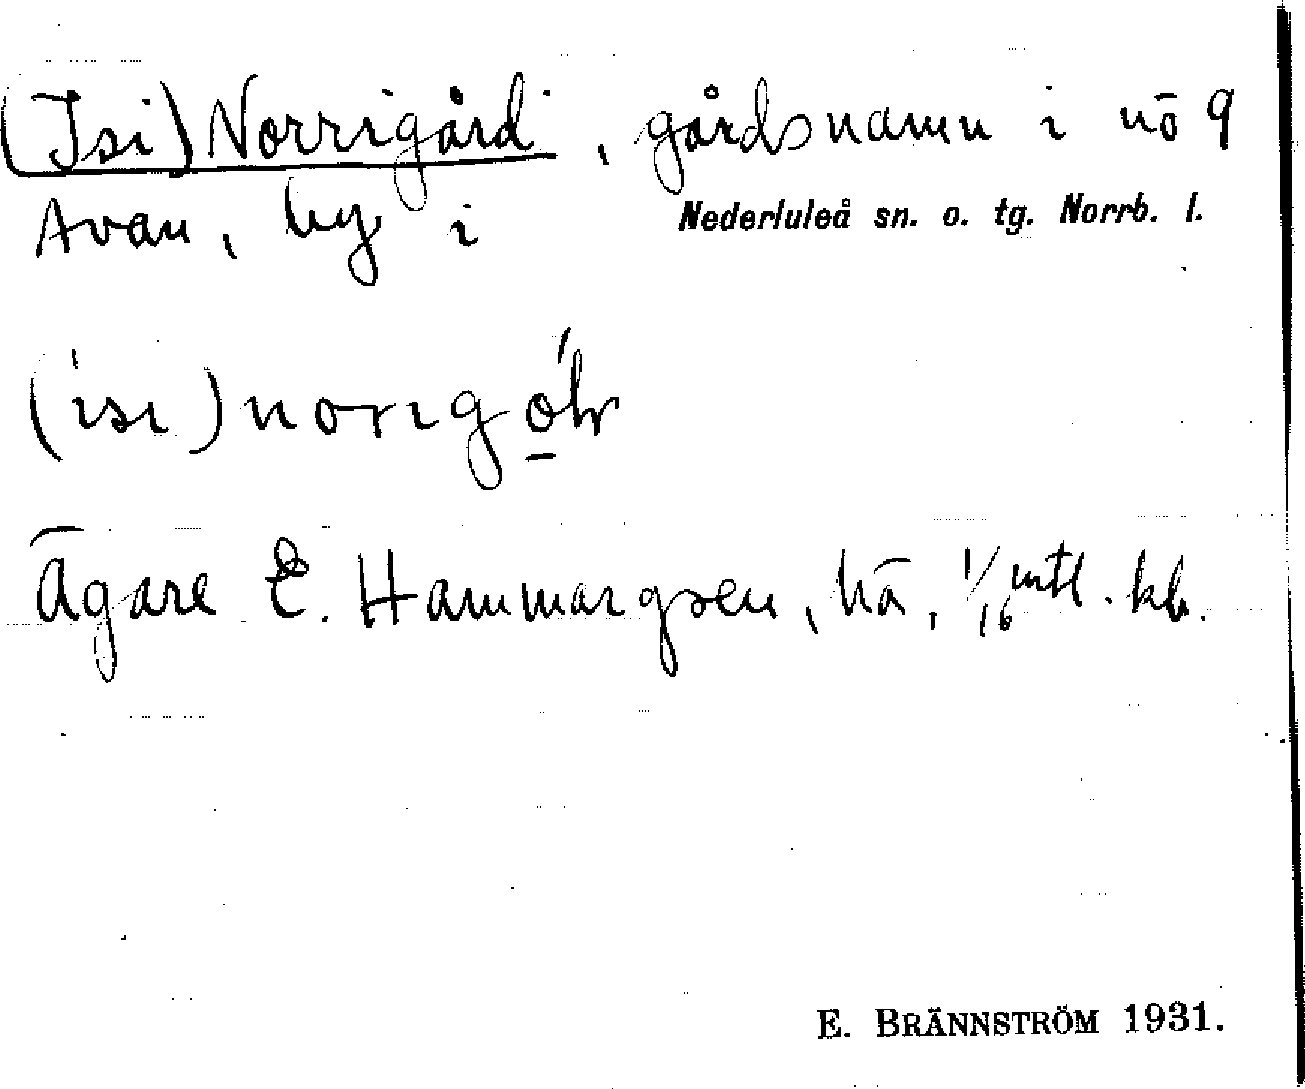 (Isi)Norrigård, gårdsnamn i nö 9
Avan, by i Nederluleå sn. o. tg. Norrb. l.
(isi)norrigo̲hr
Ägare E. Hammargren, hä, 1/16 mtl. kb.
E. BRÄNNSTRÖM 1931.